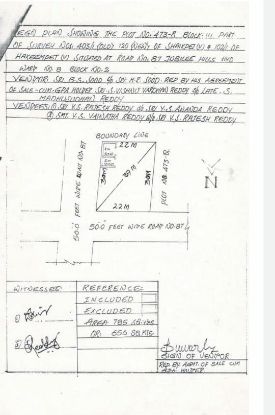 REGD PLAN SHOWING THE PLOT NO. 473-R BLOCK-III PART
OF SURVEY NO. 403/1 (OLD) 120 (NEW) OF SHAIKPET (V) & 102/1 OF
HAKEEMPET (V) SITUATED AT ROAD NO. 87 JUBILEE HILLS HYD
WARD NO. 8 BLOCK NO. 2
VENDOR SRI. B.S. SOOD S/O SRI REP BY HIS AGREEMENT
OF SALE-CUM-GPA HOLDER SRI S. VISHNU VARDHAN REDDY S/O LATE. S.
MADHUSUDHAN REDDY
VENDEES: 1) SRI Y.S. RAJESH REDDY S/O SRI Y.S. ANANDA REDDY
2) SMT. Y.S. REDDY W/O SRI Y.S. RAJESH REDDY
BOUNDARY LINE
22M
30M
30M
22M
PLOT NO. 473-B
N
50.0 FEET WIDE ROAD NO. 87
50.0 FEET WIDE ROAD NO. 87
WITNESSES
1)
2)
REFERENCE:-
INCLUDED
EXCLUDED
AREA 785 SQ.YDS
OR 656 SQ.MTS
SIGN OF VENDOR
REP BY AGMT. OF SALE CUM
GPA HOLDER